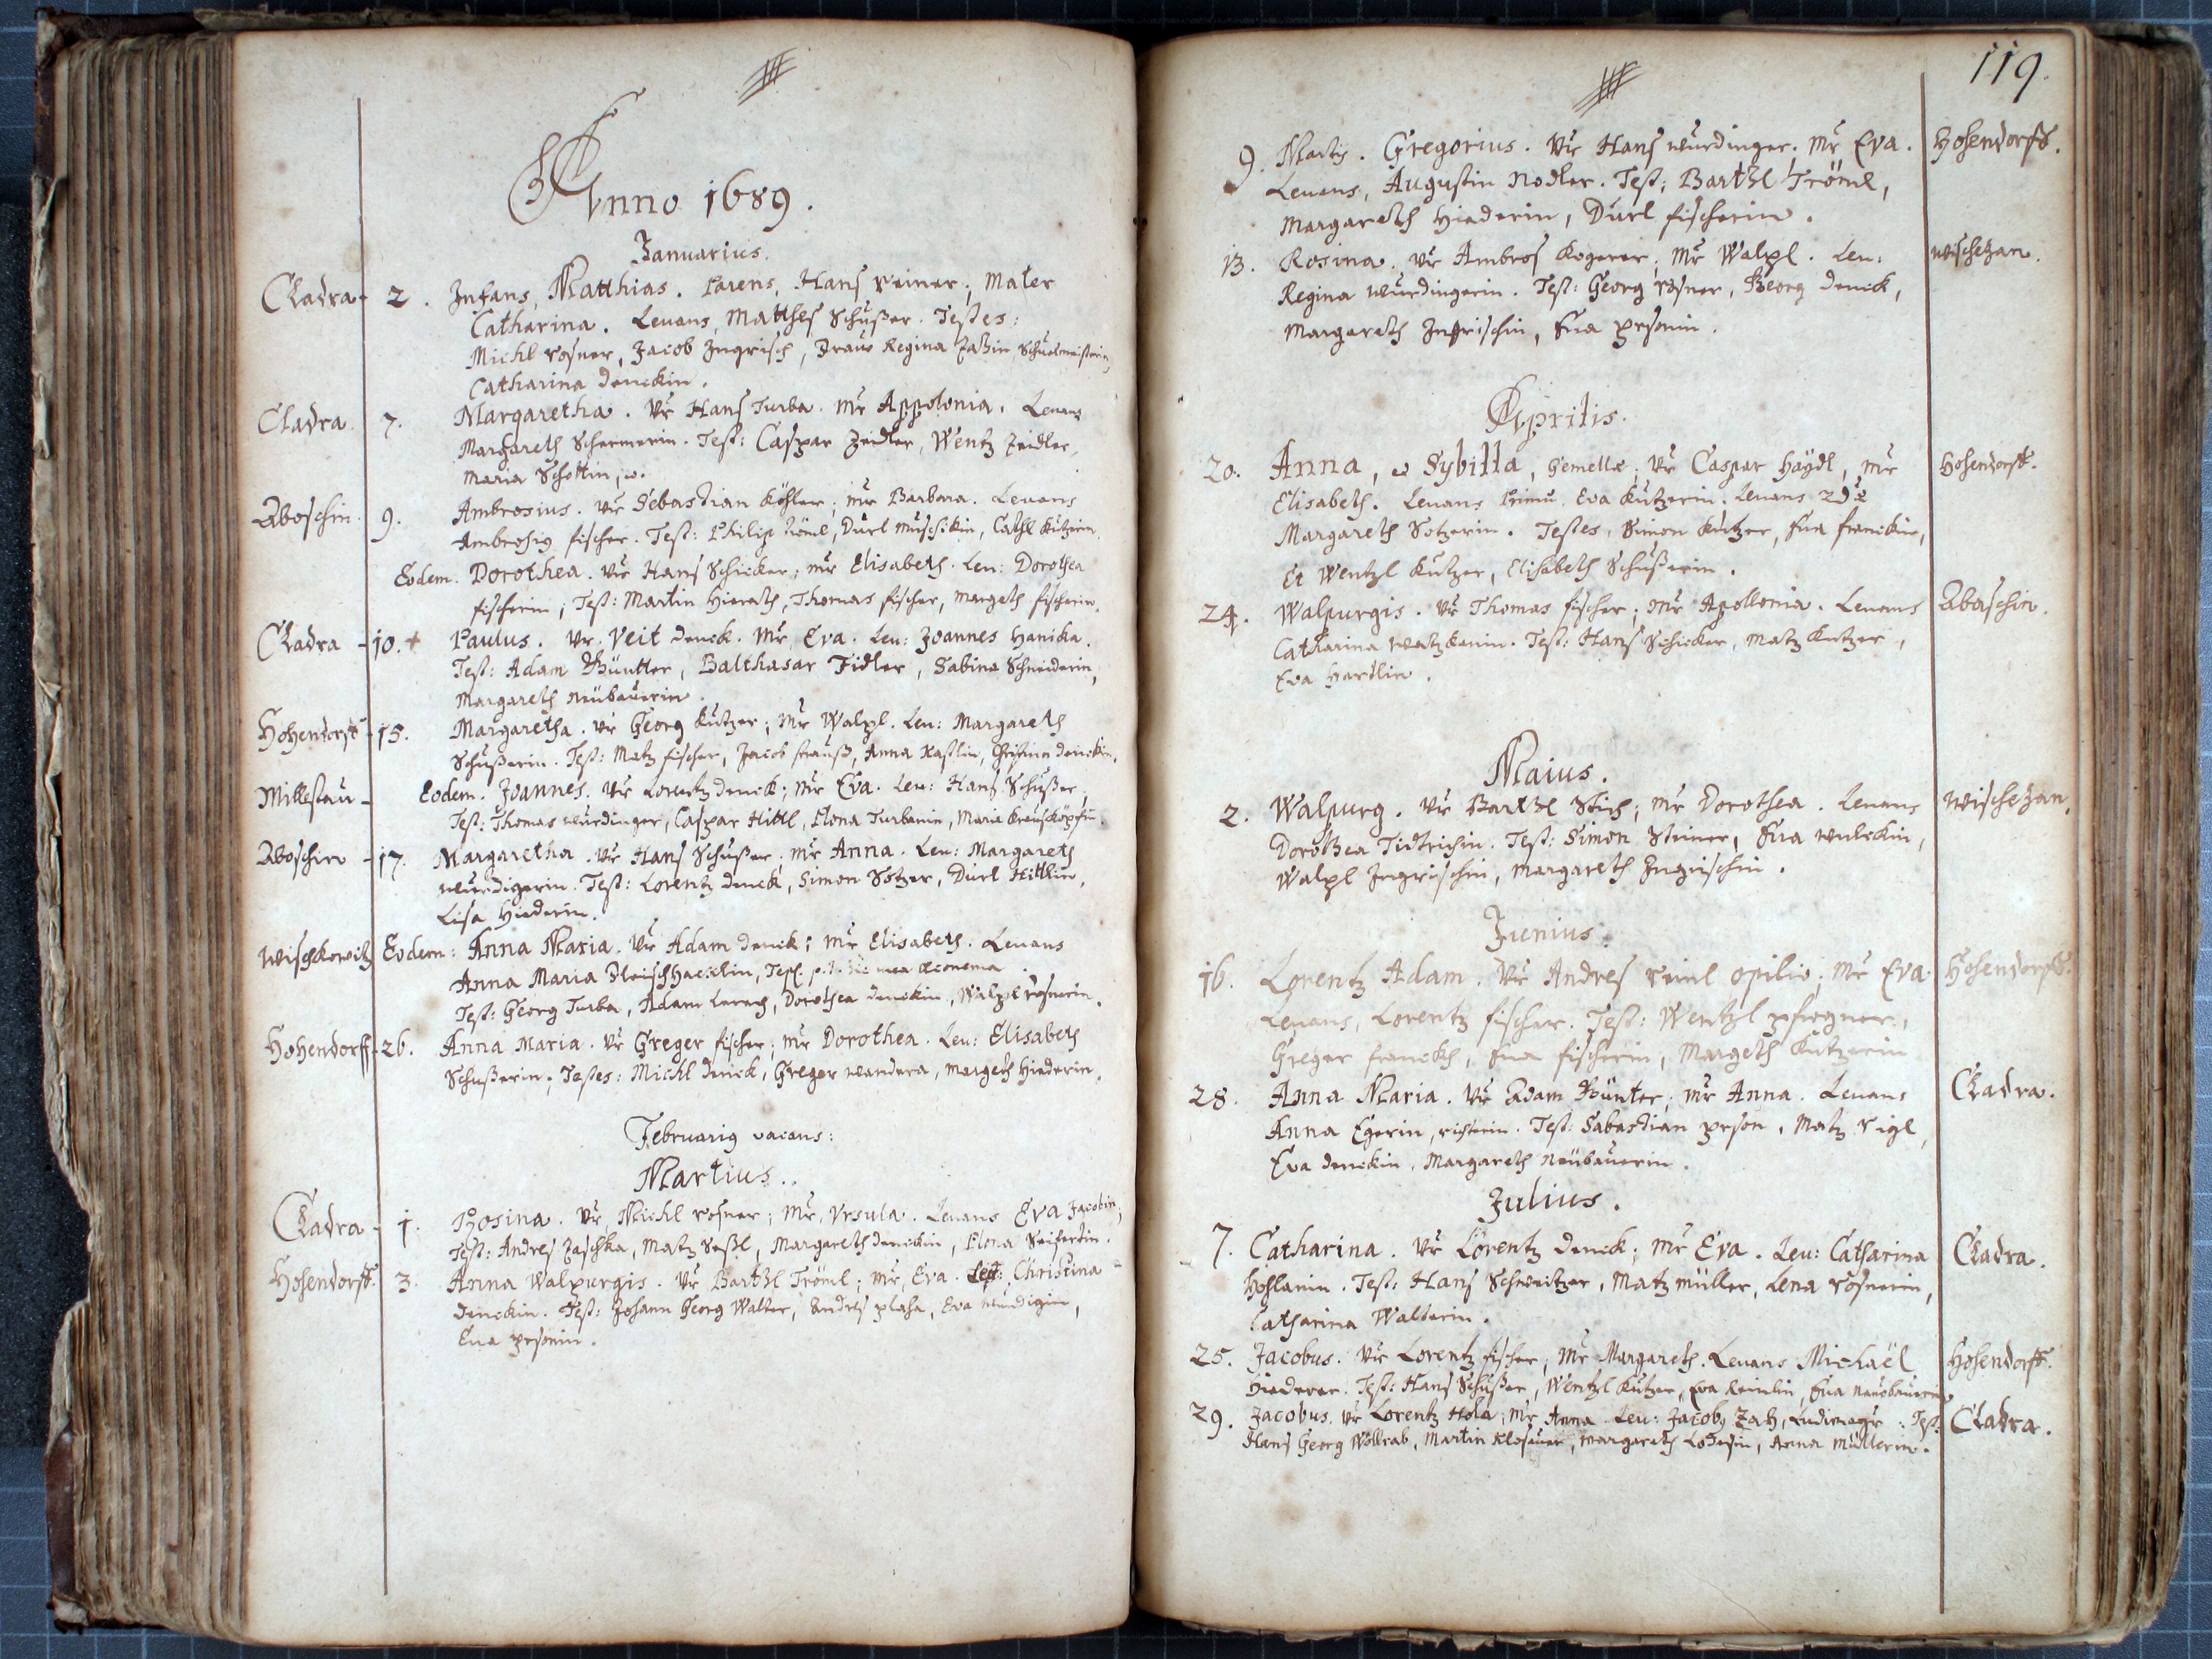 Anno 1689.
Januarius.
Cladra - 2. Infans, Matthias. Parens, Hans Reiner; Mater
Catharina. Levans, Matthes Schußer. Testes:
Michl Rosner, Jacob Ingrisch, Fraw Regina Zaßin Schuelmeisterin,
Catharina Denckin.
Cladra. 7. Margaretha. Vr Hans Turba. Mr Appolonia. Levans
Margareth Schermerin. Test: Caspar Zeidler, Wentz Zeidler,
Maria Schottin,
Aboschin. 9. Ambrosius. Vr Sebastian Köhler; Mr Barbara. Levans
Ambrosig fischer. Test: Philip Tröml, Durl Muschikin, Cathl Kutzerin.
Eodem. Dorothea. Vr Hans Schicker; Mr Elisabeth. Lev: Dorothea
fischerin; Test: Martin Hierath, Thomas fischer, Margeth fischerin.
Cladra - 10. + Paulus. Vr. Veit Denck. Mr Eva. Lev: Joannes Hanika.
Test: Adam Güntter, Balthasar Fidler, Sabina Schneiderin,
Margareth Neübauerin.
Hohendorff - 15. Margaretha. Vr Georg Kutzer; Mr Walpl. Lev: Margareth
Schußerin. Test: Matz fischer, Jacob Strauß, Anna Kastlin, Christina Denckin.
Millestau - Eodem. Joannes. Vr Lorentz Denck; Mr Eva. Lev: Hans Schußer;
Test: Thomas Würdinger, Caspar Hittl, Plona Turbanin, Maria Kreuskopfin.
Aboschin - 17. Margaretha. Vr Hans Schußer; Mr Anna. Lev: Margareth
Würdigerin. Test: Lorentz Denck, Simon Sotzer, Durl Hittlin,
Lisa Hiederin.
Wischkowitz Eodem: Anna Maria. Vr Adam Denck; Mr Elisabeth. Levans
Anna Maria Fleischhacklin, Tepl. mea Oeconoma.
Test: Georg Turba, Adam Lerach, Dorothea Denckin, Walpl Rosnerin.
Hohendorff - 26. Anna Maria. Vr Greger fischer; Mr Dorothea. Lev: Elisabeth
Schußerin; Testes: Michl Denck, Greger Wandera, Margeth Hiederin.
Februarig vacans:
Martius.
Cladra - 1. Rosina. Vr Michl Rosner; Mr Ursula. Levans Eva Jacobin;
Test: Andres Zaschka, Matz Seßl, Margareth Denckin, Plona Seifertin.
Hohendorff. 3. Anna Walpurgis. Vr Barthl Tröml; Mr, Eva. Lev: Christina
Denckin. Test: Johann Georg Walter, Andres Plaha, Eva Würdigin,
Eva Prsonin.
119.
9. Martij. Gregorius. Vr Hans Würdinger. Mr Eva. Hohendorff.
Levans, Augustin Nodler. Test; Barthl Tröml,
Margareth Hiederin, Durl fischerin.
13. Rosina. Vr Ambros Kogerer; Mr Walpl. Lev: Wischezan.
Regina Würdingerin. Test: Georg Rosner, Georg Denck,
Margareth Ingrischin, Eva Prsonin.
Aprilis.
20. Anna, et Sybilla, Gemellæ; Vr Caspar Haÿdl, Mr Hohendorff.
Elisabeth. Levans Primu Eva Kutzerin. Levans 2dæ
Margareth Sotzerin. Testes, Simon Kutzer, Eva Franckin,
Et Wentzl Kutzer, Elisabeth Schußerin.
24. Walpurgis. Vr Thomas fischer; Mr Apollonia. Levans Abaschin.
Catharina Watzkanin. Test: Hans Schicker, Matz Kutzer,
Eva Hardlin.
Maius.
2. Walpurg. Vr Barthl Stich; Mr Dorothea. Levans Wischezan.
Dorothea Tidtrichin. Test: Simon Steiner, Eva
Walpl Ingrischin, Margareth Ingrischin.
Junius.
16. Lorentz Adam. Vr Andres Reinl Opilio; Mr Eva. Hohendorff.
Levans, Lorentz fischer. Test: Wentzl Pfrogner,
Greger Franckh, Eva fischerin, Margeth Kutzerin
28. Anna Maria. Vr Adam Günter; Mr Anna. Levans Cladra.
Anna Egerin, Richterin. Test: Sabastian Prson, Matz Rigl,
Eva Denckin, Margareth Neübauerin.
Julius.
7. Catharina. Vr Lorentz Denck; Mr Eva. Lev: Catharina Cladra.
Hohlanin. Test: Hans Schweitzer, Matz Müller, Lena Rosnerin,
Catharina Walterin.
25. Jacobus. Vr Lorentz fischer; Mr Margareth. Levans Michaël Hohendorff.
Hiederer. Test: Hans Schußer, Wentzl Kutzer, Eva Reinlin, Eva Neubauerin
29. Jacobus. Vr Lorentz Hola; Mr Anna. Lev: Jacobg Zaß, Ludimagr. Test: Cladra.
Hans Georg Wollrab, Martin Klosauer, Margareth Lohrsin, Anna Müllerin.